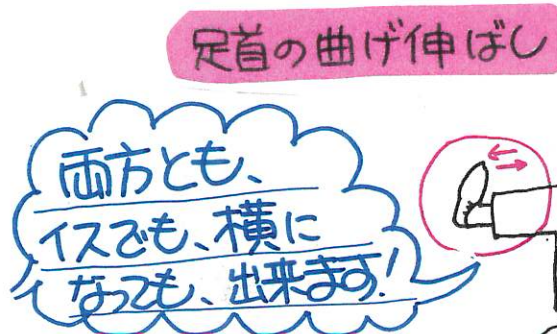 足首の曲げ伸ばし
両方とも、
イスでも、横に
なっても、出来ます!